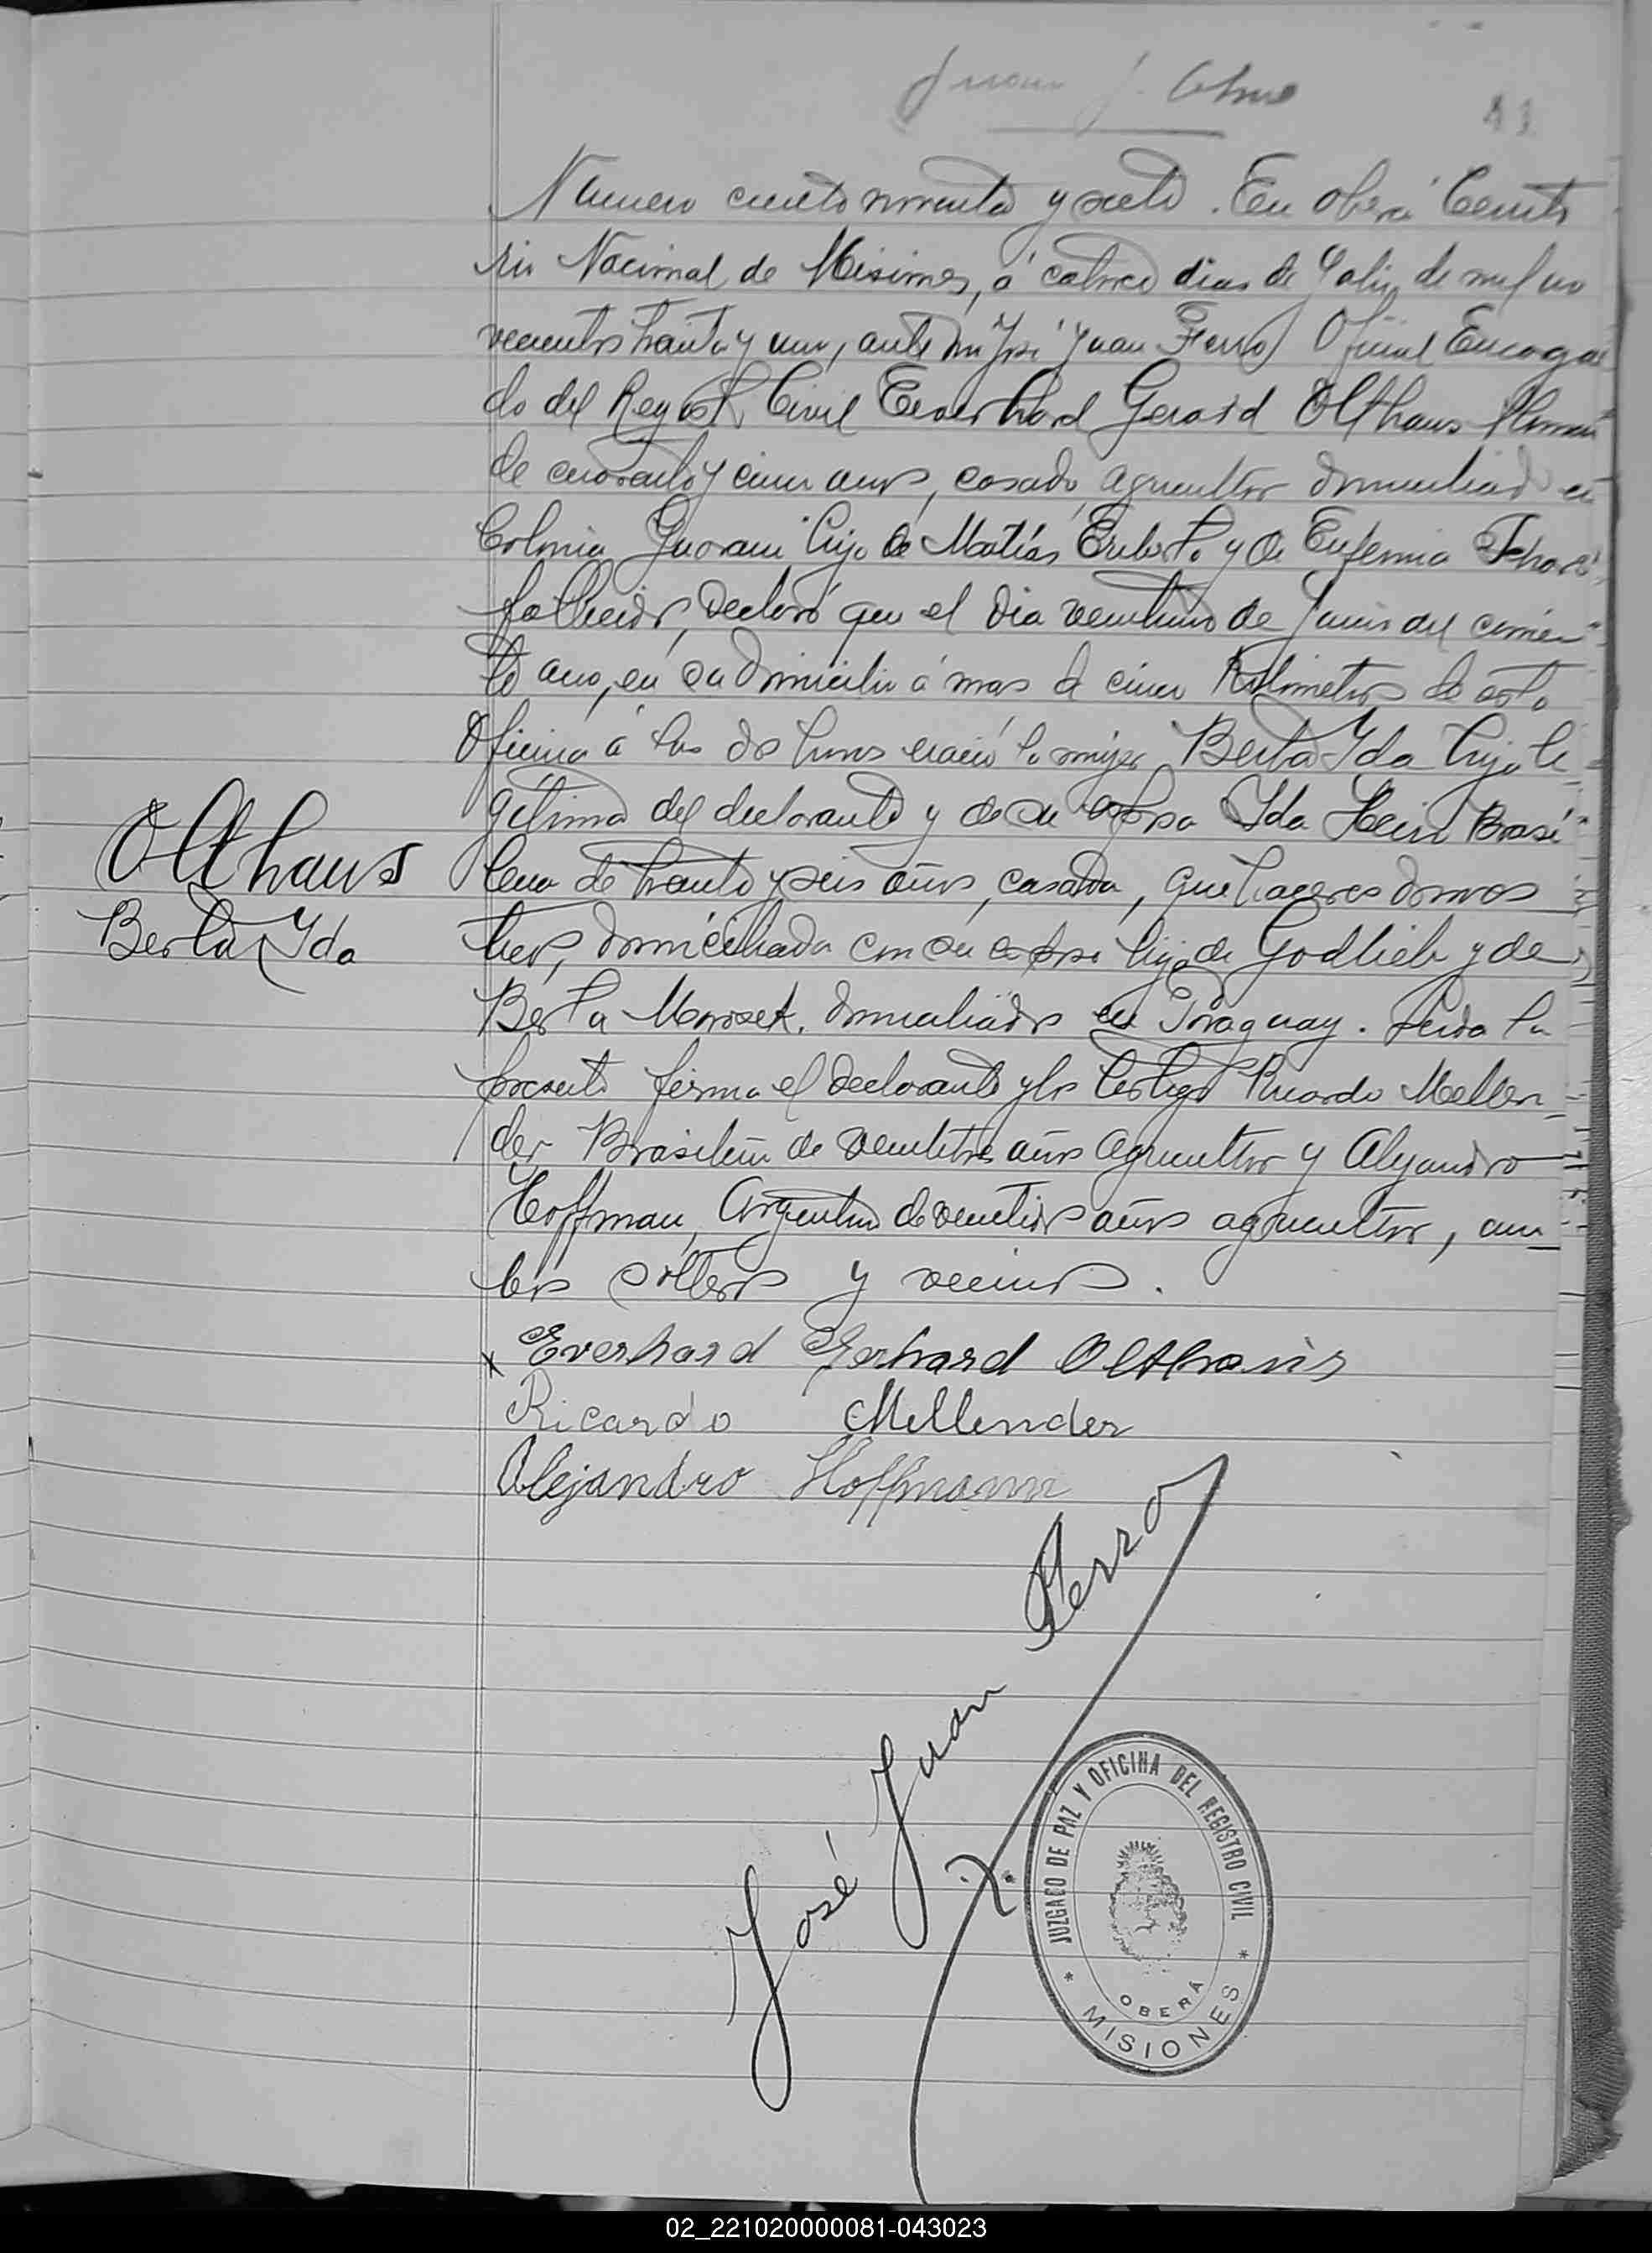 Numero ciento noventa y siete. En Oberá Territo
rio Nacional de Misiones, á catorce dias de Julio de mil no
vecientos treinta y uno, ante mi José Juan Ferro Oficial Encarga
do del Registro Civil Everhard Gerard Olthaus Aleman
de cuarenta y cinco años, casado, agricultor domiciliado en
Colonia Guarani hijo de Matías Eriberto y de Eufemia
fallecidos, declaró que el dia veintiuno de Junio del corrien
te año, en su domicilio á mas de cinco Kilometros de esta
Oficina á las dos horas nació la mujer Berta Ida hija le
gítima del declarante y de su esposa Ida Hein Brasi
lena de treinta y seis años, casada, quehaceres domes
ticos, domiciliada con su esposo hija de Godlieb y de
Berta domiciliados en Paraguay. Leida la
presente firma el declarante y los testigos Ricardo Mellen
der Brasileño de veintitres años agricultor y Alejandro
Hoffman, Argentino de veintidos años agricultor, am
bos solteros y vecinos.
Olthaus
Berta Ida
x Everhard Gerhard Olthaus
Ricardo Mellender
Alejandro Hoffmann
José Juan Ferro
JUZGADO DE PAZ Y OFICINA DEL REGISTRO CIVIL
OBERÁ
* MISIONES *
02_221020000081-043023